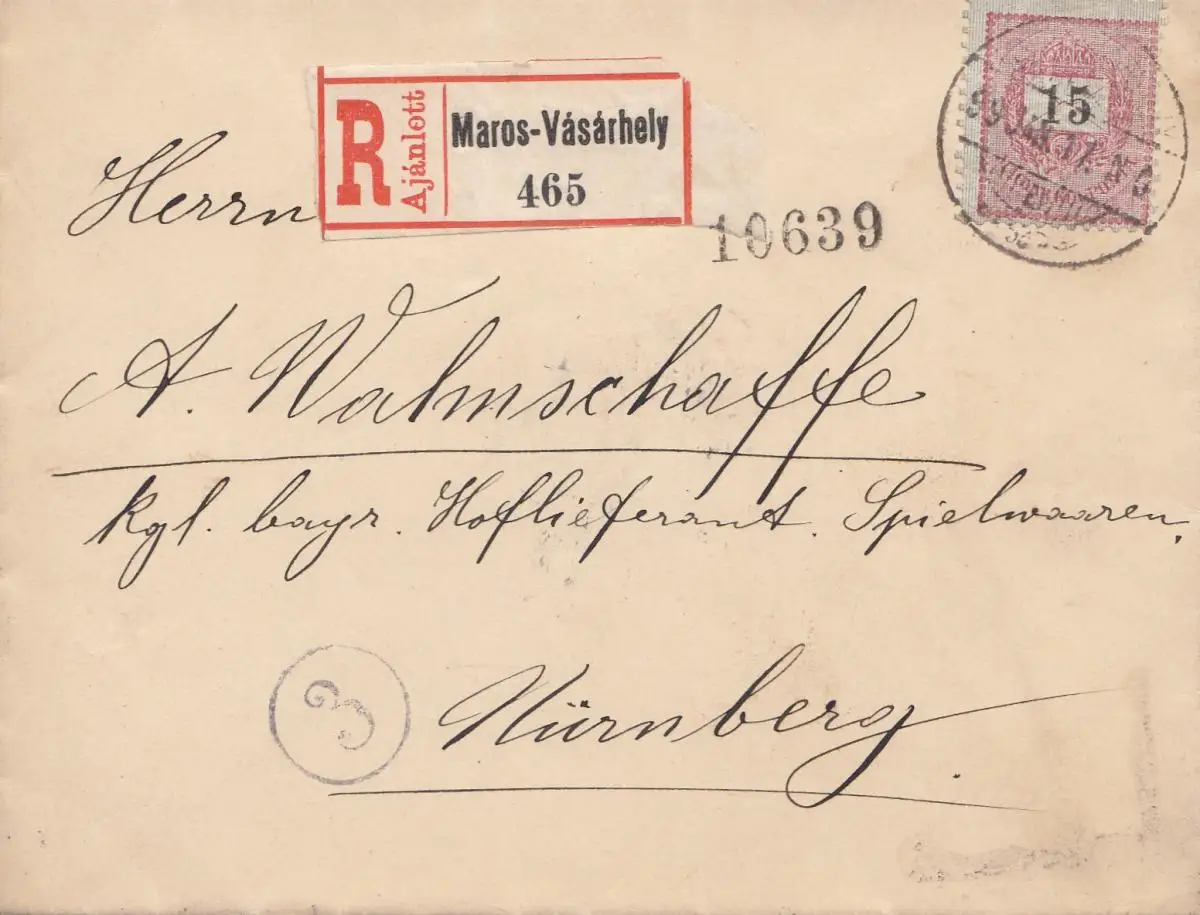 R
Ajánlott
Maros-Vásárhely
465
15
10639
Herrn
A. Wahnschaffe
kgl. bayr. Hoflieferant. Spielwaaren,
3
Nürnberg.